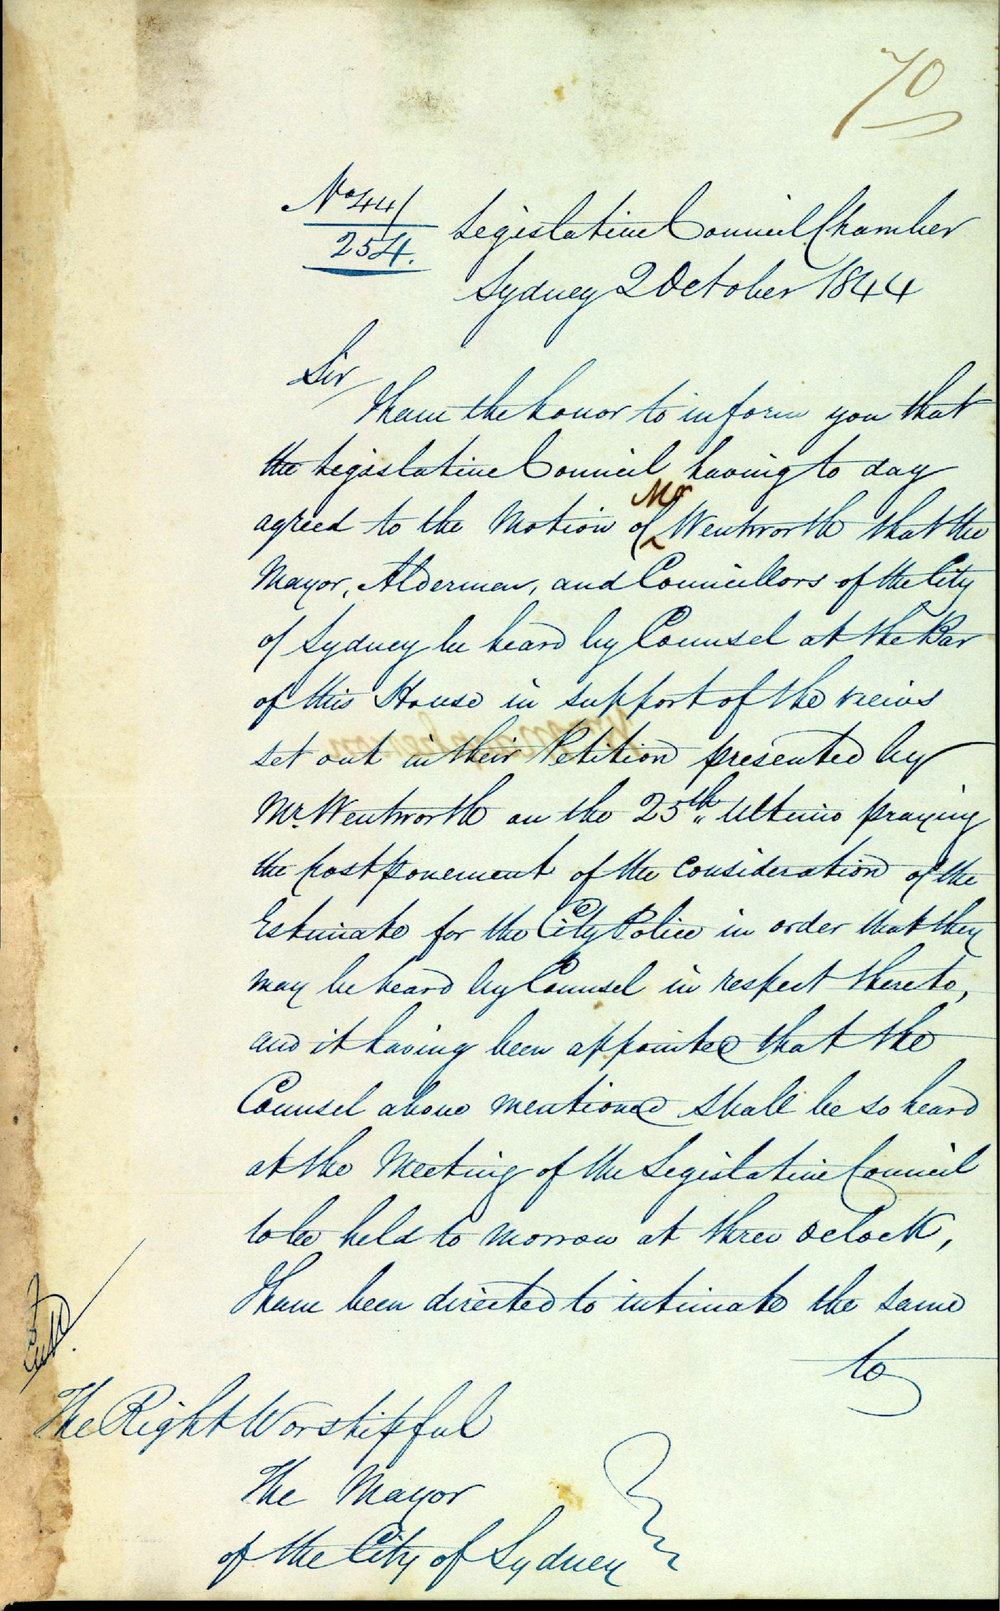 70
No 44/
254.
Legislative Council Chamber
Sydney 2 October 1844
Sir
I have the honor to inform you that
the Legislative Council having to day
agreed to the Motion of Mr Wentworth that the
Mayor, Aldermen, and Councillors of the City
of Sydney be heard by Counsel at the Bar
of this House in support of the views
set out in their Petition presented by
Mr. Wentworth on the 25th Ultimo praying
the postponement of the consideration of the
Estimate for the City Police in order that they
may be heard by Counsel in respect thereto,
and it having been appointed that the
Counsel above mentioned shall be so heard
at the Meeting of the Legislative Council
to be held to morrow at three oclock,
I have been directed to intimate the same
to
The Right Worshipful
The Mayor
of the City of Sydney